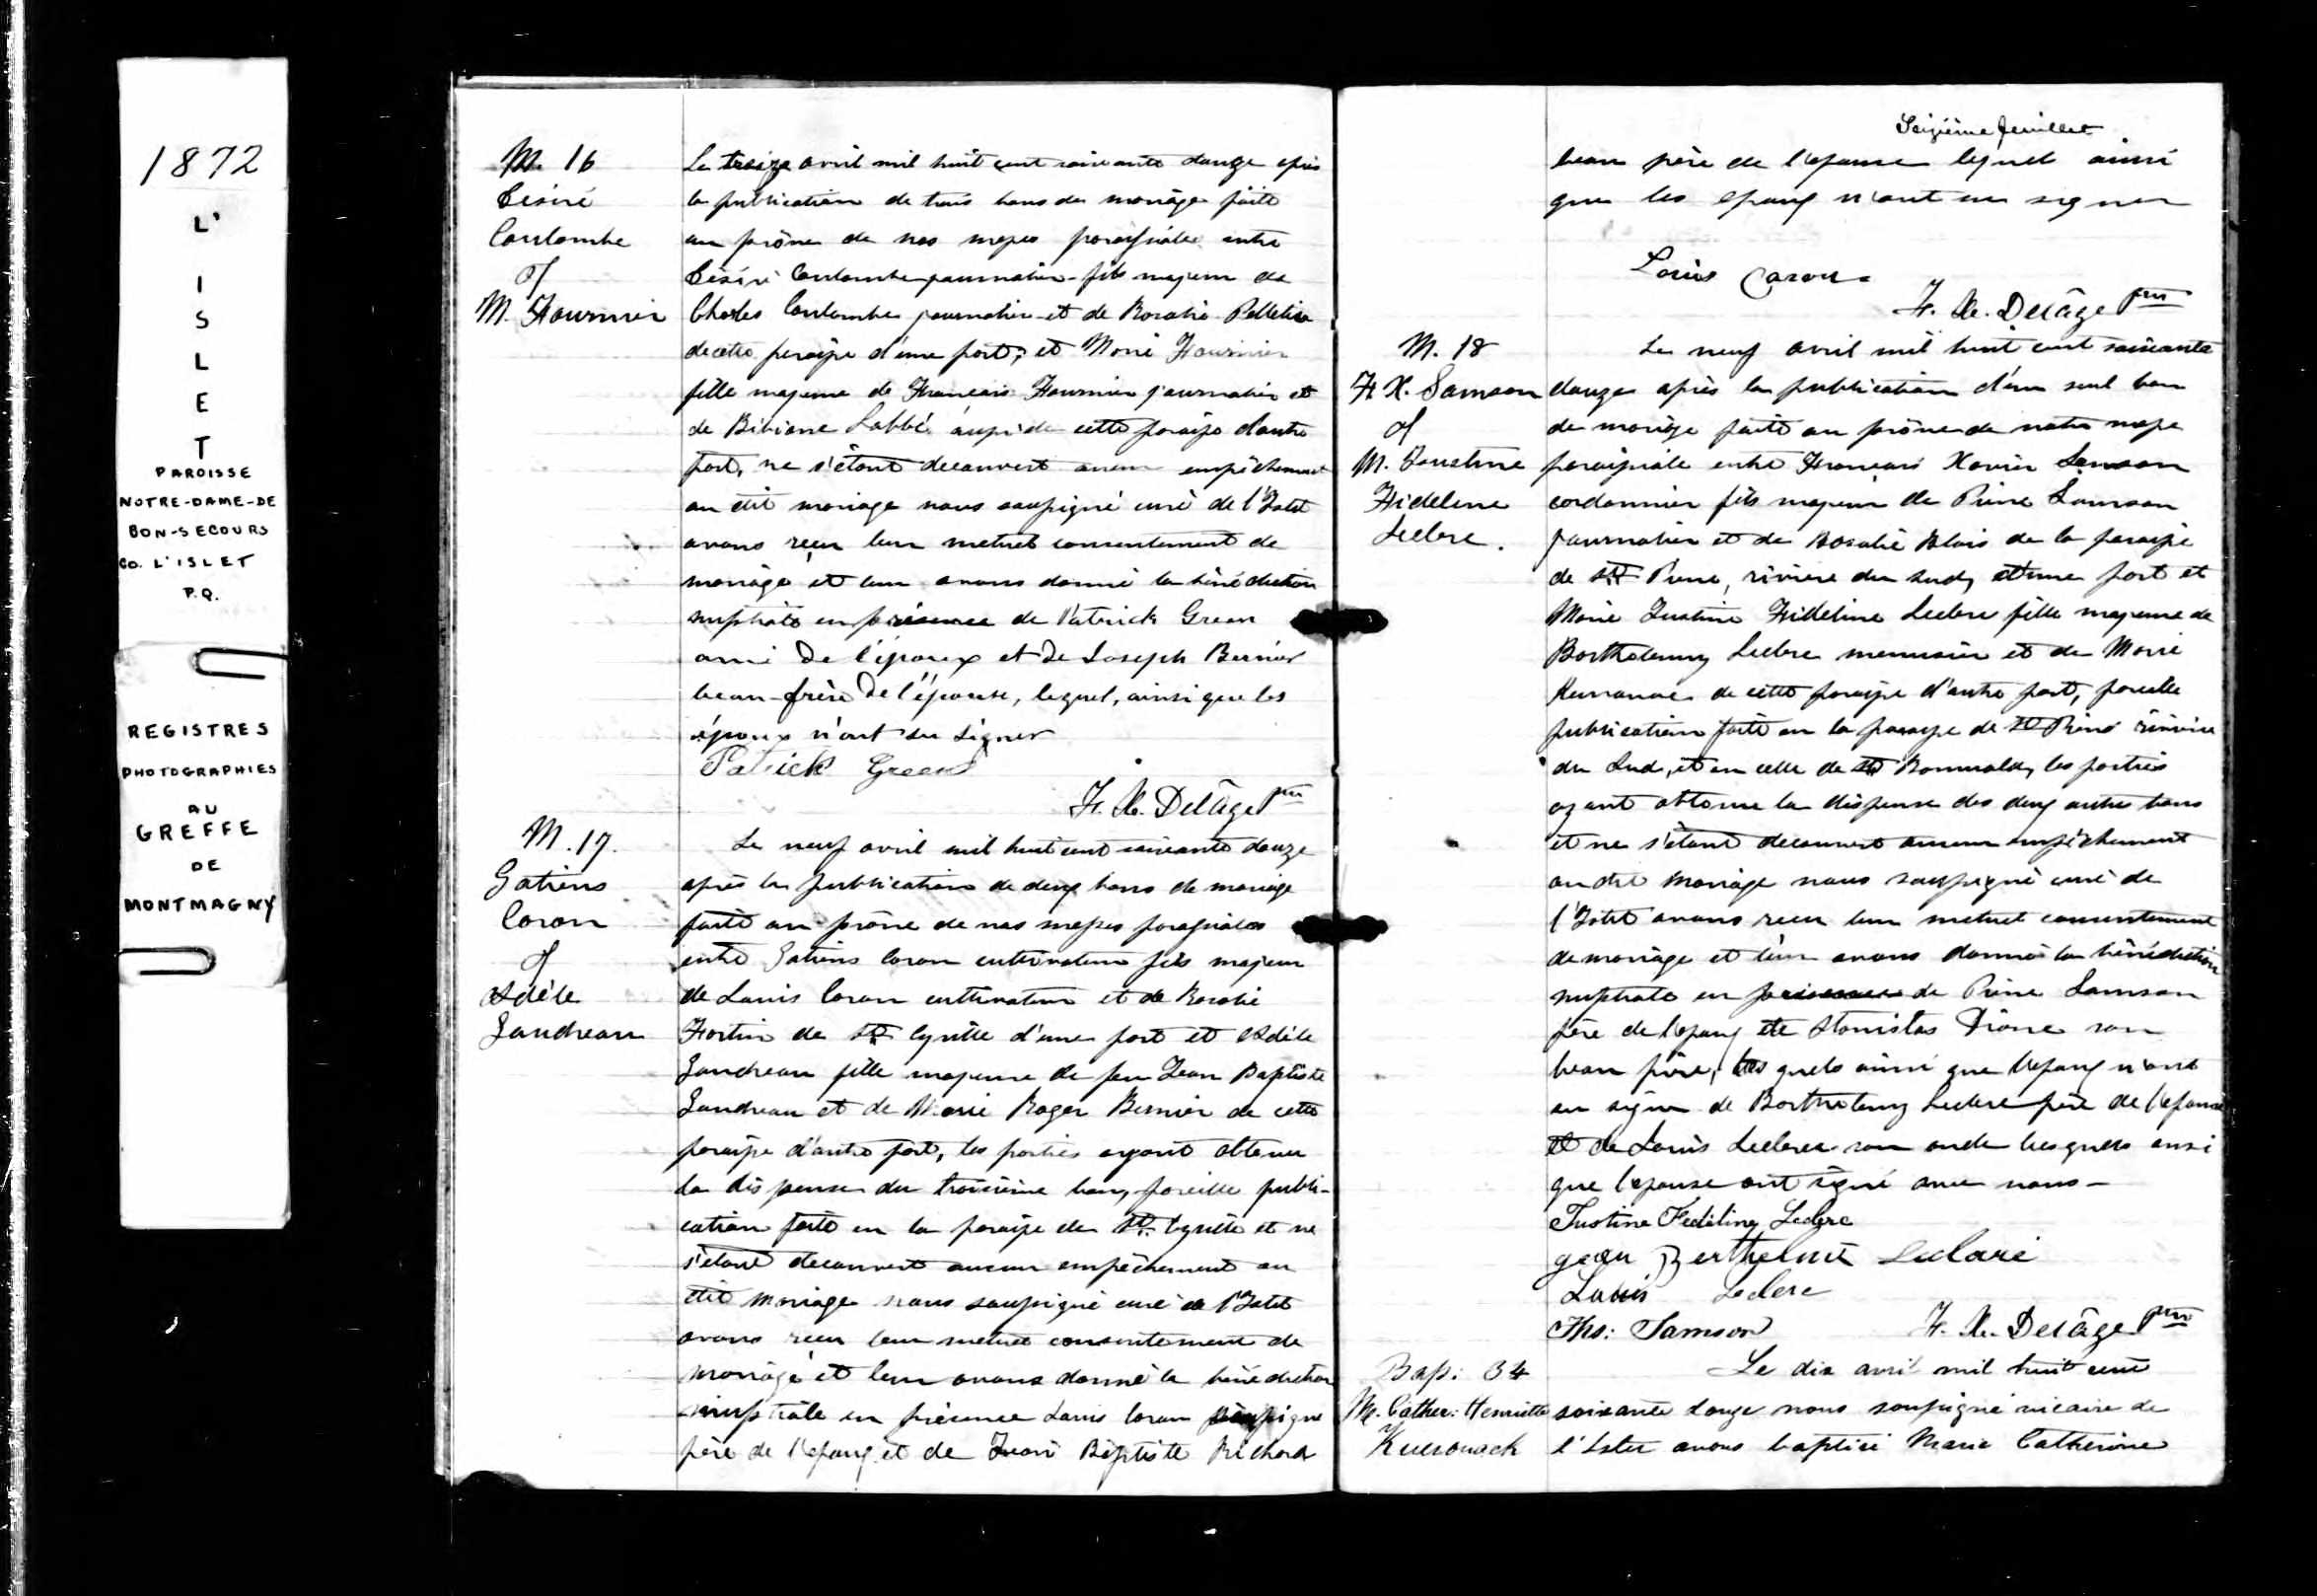 1872
L'
I
S
L
E
T
PAROISSE
NOTRE-DAME-DE
BON-SECOURS
CO. L'ISLET
P.Q.
REGISTRES
PHOTOGRAPHIES
AU
GREFFE
DE
MONTMAGNY
M. 16
Désiré
Coulombe
&
M. Fournier
Le treize avril mil huit cent soixante douze après
la publication de trois bans de mariage faite
au prône de nos messes paroissiales entre
Désiré Coulombe journalier fils majeur de
Charles Coulombe journalier et de Rosalie Pelletier
de cette paroisse d'une part, et Marie Fournier
fille majeure de Francois Fournier journalier et
de Bibiane Labbé aussi de cette paroisse d'autre
part, ne s'étant decouvert aucun empêchement
au dit mariage nous soussigné curé de l'Islet
avons reçu leur mutuel consentement de
mariage et leur avons donné la bénédiction
nuptiale en présence de Patrick Green
ami de l'époux et de Joseph Bernier
beau-frère de l'épouse, lequel, ainsi que les
époux n'ont su signer
Patrick Green
F. X. Delâge Ptre
M. 17.
Gatiens
Caron
&
Adèle
Gaudreau
Le neuf avril mil huit cent soixante douze
après la publication de deux bans de mariage
faite au prône de nos messes paroissiales
entre Gatiens Caron cultivateur fils majeur
de Louis Caron cultivateur et de Rosalie
Fortin de St Cyrille d'une part et Adèle
Gaudreau fille majeure de feu Jean Baptiste
Gaudreau et de Marie Roger Bernier de cette
paroisse d'autre part, les parties ayant obtenu
la dispense du troisième ban, pareille publi-
cation faite en la paroisse de St. Cyrille et ne
s'étant decouvert aucun empêchement au
dit mariage nous soussigné curé de l'Islet
avons reçu leur mutuel consentement de
mariage et leur avons donné la bénédiction
nuptiale en présence Louis Caron soussigné
père de l'epoux et de Jean Baptiste Richard
Seizième feuillet
beau père de l'epouse lequel ainsi
que les epoux n'ont su signer
Louis Caron
F. X. Delâge Ptre
M. 18
F X. Samson
&
M. Justine
Fideline
Leclerc.
Le neuf avril mil huit cent soixante
douze après la publication d'un seul ban
de mariage faite au prône de notre messe
paroissiale entre Francois Xavier Samson
cordonnier fils majeur de Pierre Samson
journalier et de Rosalie Blais de la paroisse
de St Pierre, riviere du sud, d'une part et
Marie Justine Fideline Leclerc fille majeure de
Barthelemy Leclerc menuisier et de Marie
de cette paroisse d'autre part, pareille
publication faite en la paroisse de St Pierre rivière
du Sud, et en celle de St Romuald, les parties
ayant obtenu la dispense des deux autres bans
et ne s'étant decouvert aucun empêchement
au dit mariage nous soussigné curé de
l'Islet avons reçu leur mutuel consentement
de mariage et leur avons donné la bénédiction
nuptiale en présence de Pierre Samson
père de l'epoux et de Stanislas Dionne son
beau frère, les quels ainsi que l'epoux n'ont
su signer de Barthelemy Leclerc père de l'epouse
et de Louis Leclerc son oncle lesquels ainsi
que l'epouse ont signé avec nous -
Justine Fédéline Leclerc
jean Berthelmi Leclaire
Louis Leclerc
Ths: Samson
F. X. Delâge Ptre
Bap: 34
M. Cather: Henriette
Le dix avril mil huit cent
soixante douze nous soussigné vicaire de
l'Islet avons baptisé Marie Catherine